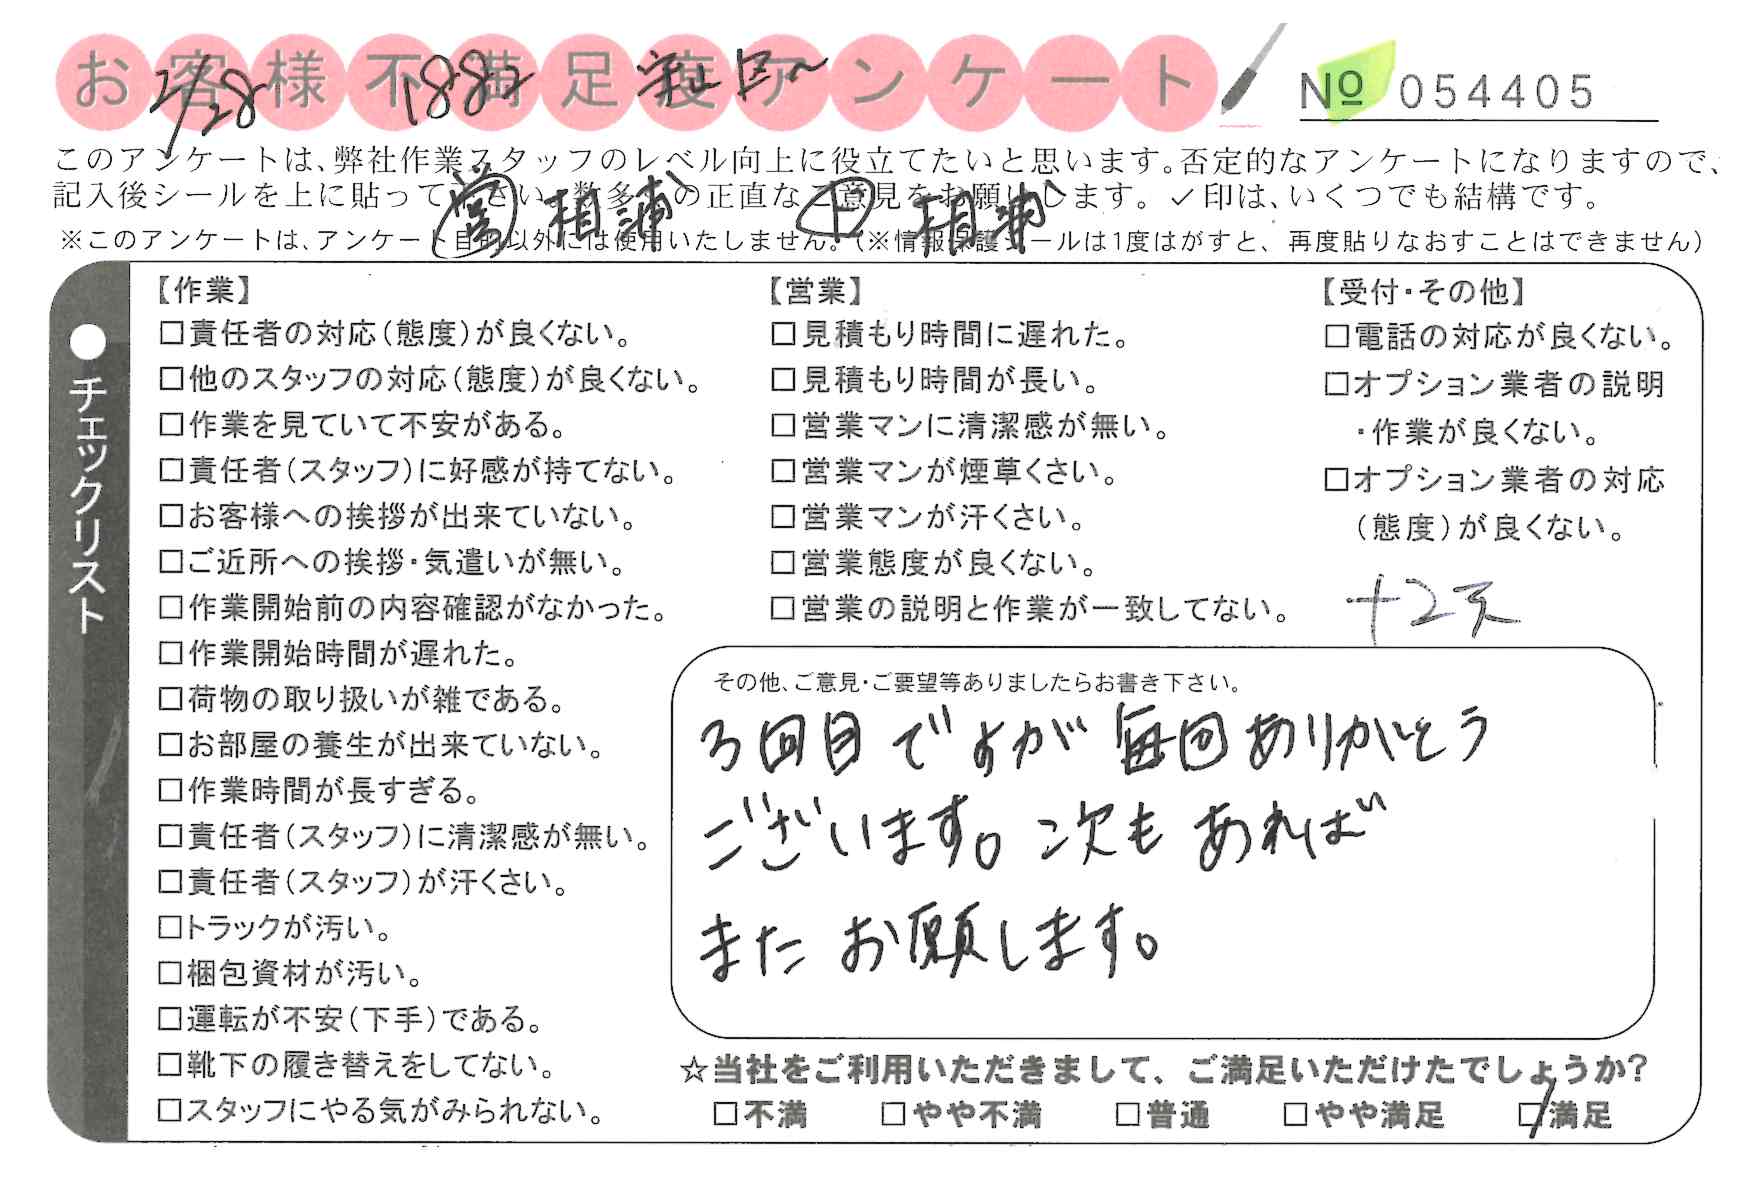 お客様不満足度アンケート
No 054405
2/28
このアンケートは、弊社作業スタッフのレベル向上に役立てたいと思います。否定的なアンケートになりますので、
記入後シールを上に貼って下さい。数多くの正直なご意見をお願いします。✓印は、いくつでも結構です。
営 相浦
相浦
※このアンケートは、アンケート目的以外には使用いたしません。(※情報保護シールは1度はがすと、再度貼りなおすことはできません)
●チェックリスト
【作業】
□責任者の対応(態度)が良くない。
□他のスタッフの対応(態度)が良くない。
□作業を見ていて不安がある。
□責任者(スタッフ)に好感が持てない。
□お客様への挨拶が出来ていない。
□ご近所への挨拶・気遣いが無い。
□作業開始前の内容確認がなかった。
□作業開始時間が遅れた。
□荷物の取り扱いが雑である。
□お部屋の養生が出来ていない。
□作業時間が長すぎる。
□責任者(スタッフ)に清潔感が無い。
□責任者(スタッフ)が汗くさい。
□トラックが汚い。
□梱包資材が汚い。
□運転が不安(下手)である。
□靴下の履き替えをしてない。
□スタッフにやる気がみられない。
【営業】
□見積もり時間に遅れた。
□見積もり時間が長い。
□営業マンに清潔感が無い。
□営業マンが煙草くさい。
□営業マンが汗くさい。
□営業態度が良くない。
□営業の説明と作業が一致してない。
【受付・その他】
□電話の対応が良くない。
□オプション業者の説明
・作業が良くない。
□オプション業者の対応
(態度)が良くない。
その他、ご意見・ご要望等ありましたらお書き下さい。
3回目ですが毎回ありがとう
ございます。次もあれば
またお願します。
☆当社をご利用いただきまして、ご満足いただけたでしょうか?
□不満 □やや不満 □普通 □やや満足 □満足